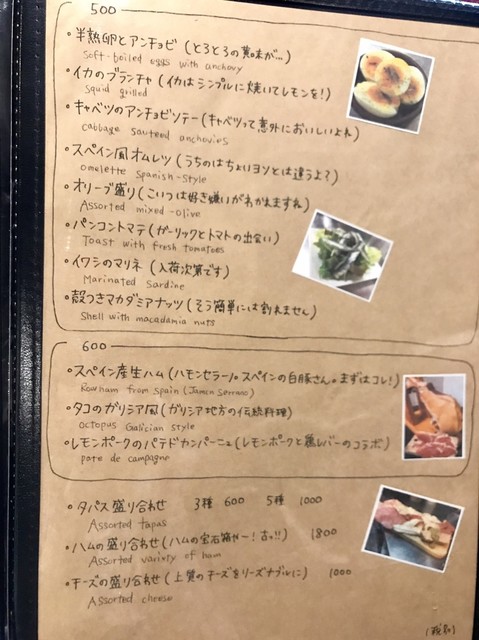 500
・半熟卵とアンチョビ (とろとろの黄味が…)
Soft-boiled eggs with anchovy
・イカのプランチャ (イカはシンプルに焼いてレモンを!)
Squid grilled
・キャベツのアンチョビソテー (キャベツって意外においしいよね)
cabbage sauteed anchovies
・スペイン風オムレツ (うちのはちょいヨソとは違うよ?)
omelette Spanish-style
・オリーブ盛り (こいつは好き嫌いがわかれますね)
Assorted mixed-olive
・パンコントマテ (ガーリックとトマトの出会い)
Toast with fresh tomatoes
・イワシのマリネ (入荷次第です)
Marinated Sardine
・殻つきマカダミアナッツ (そう簡単には割れません)
Shell with macadamia nuts
600
・スペイン産生ハム (ハモンセラーノ。スペインの白豚さん。まずはコレ!)
Raw ham from Spain (Jamon serrano)
・タコのガリシア風 (ガリシア地方の伝統料理)
octopus Galician style
・レモンポークのパテドカンパーニュ (レモンポークと鶏レバーのコラボ)
pate de campagne
・タパス盛り合わせ 3種 600 5種 1000
Assorted tapas
・ハムの盛り合わせ (ハムの宝石箱やー!古っ!!) 1800
Assorted variety of ham
・チーズの盛り合わせ (上質のチーズをリーズナブルに) 1000
Assorted cheese
(税別)